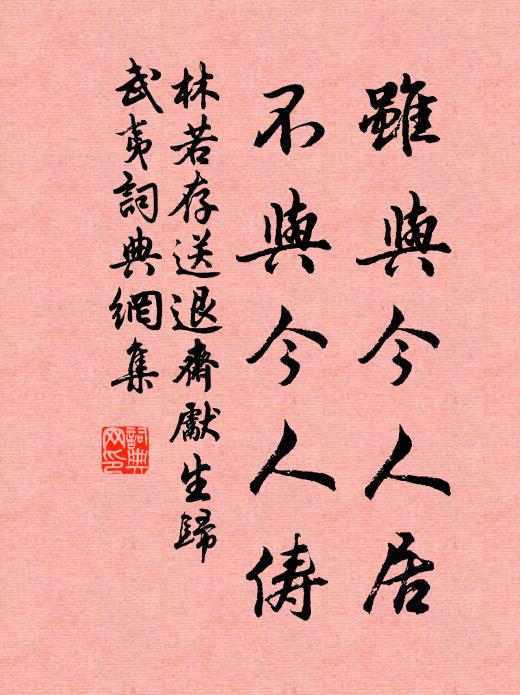 雖與今人居
不與今人儔
林若存送退齋獻生歸
武夷詞典網集
詞典
网印